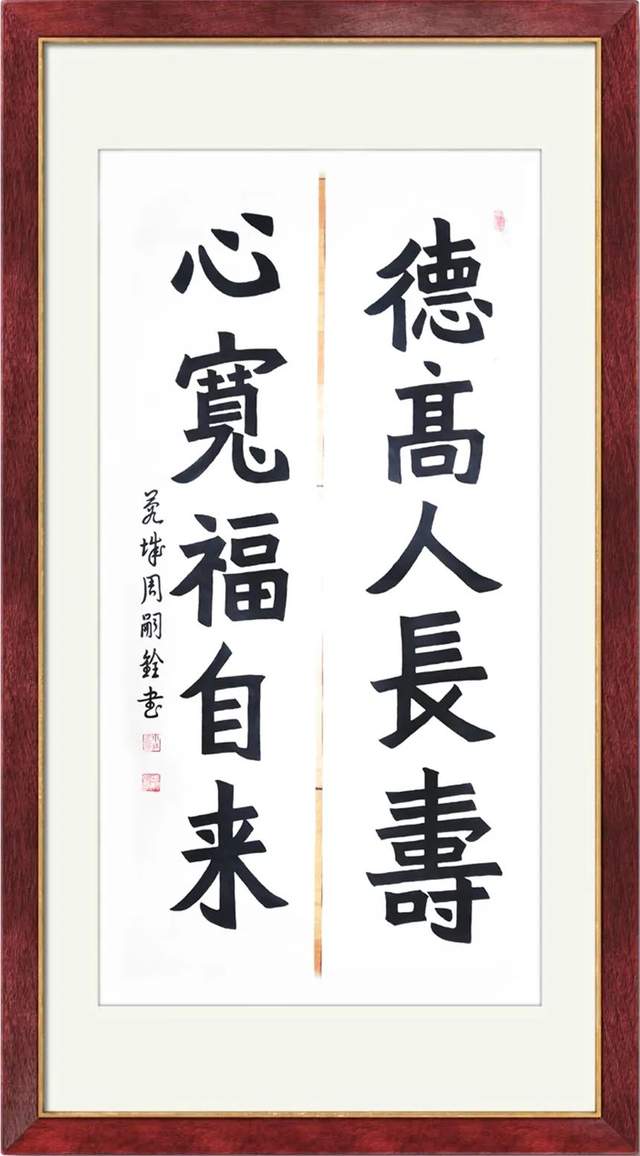 德高人長壽
心寬福自来
芜城周嗣銓书